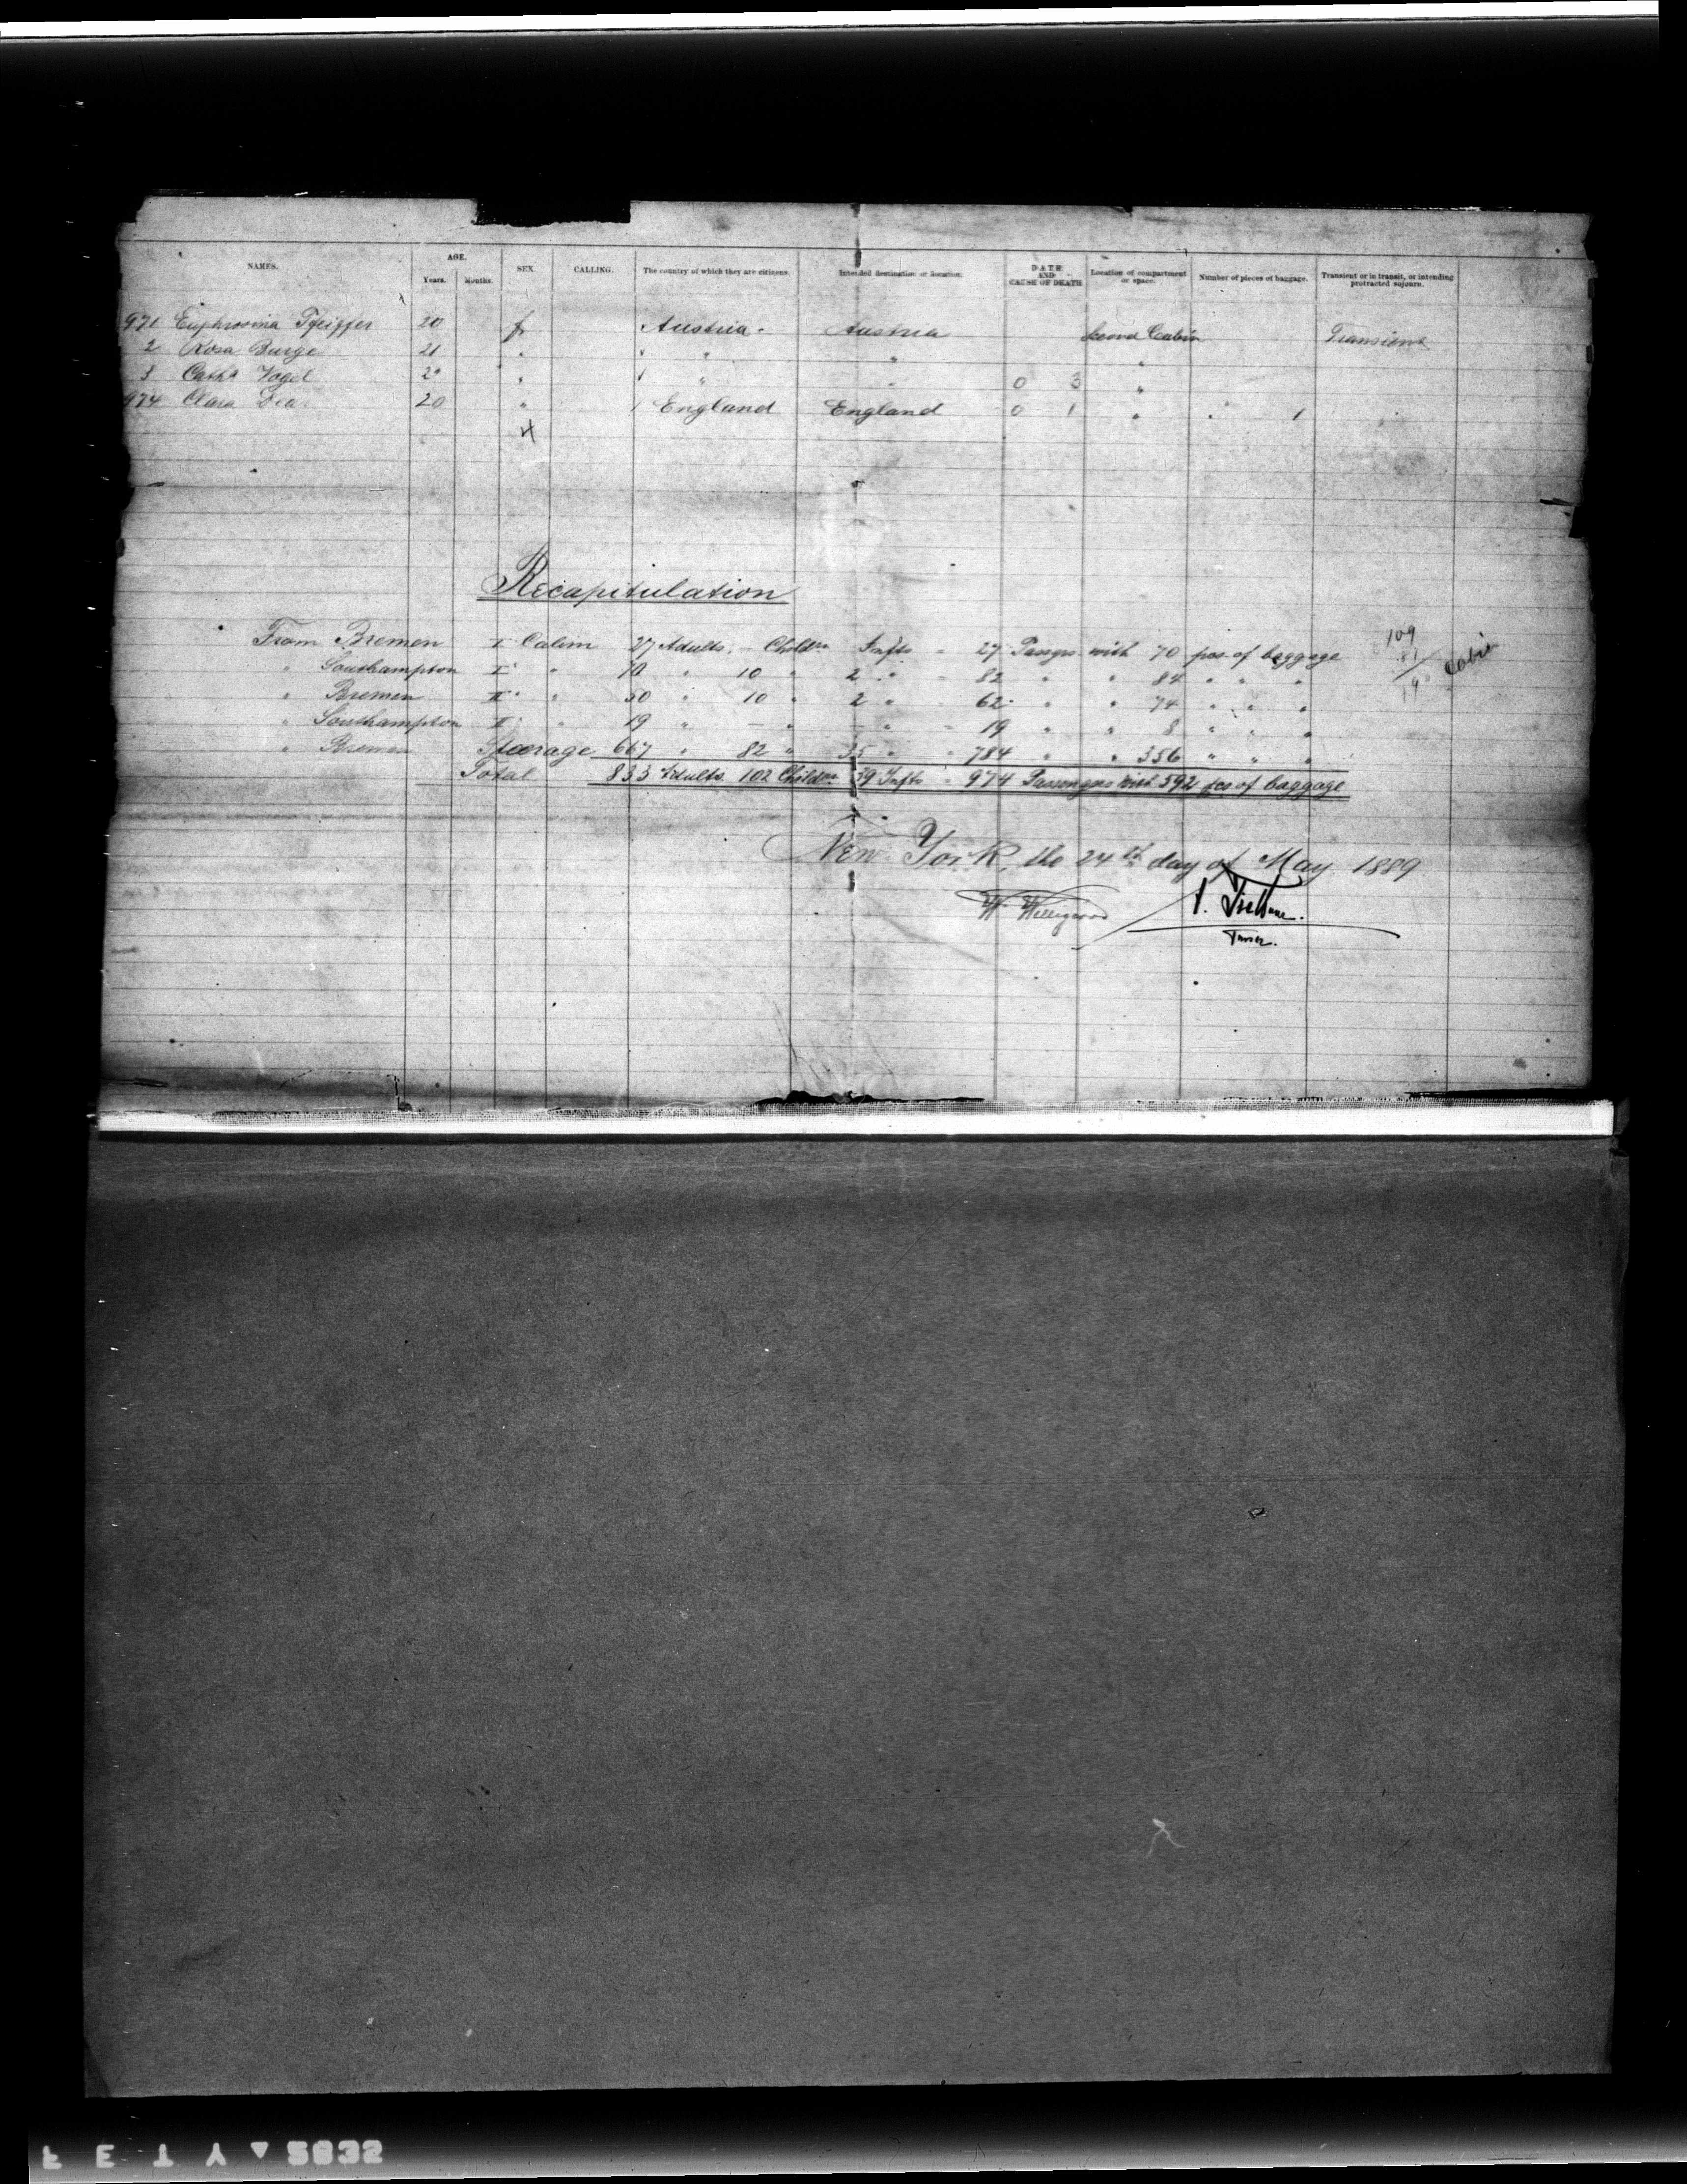 NAMES. AGE. Years. Months. SEX. CALLING. The country of which they are citizens. Intended destination or location. DATE AND CAUSE OF DEATH Location of compartment or space. Number of pieces of baggage. Transient or in transit, or intending protracted sojourn.
971 Euphrosina Pfeiffer 20 f Austria Austria Second Cabin Transient
2 Rosa Burge 21 " " " "
3 Cath. Vogel 20 " " " 0 3 "
974 Clara 20 " England England 0 1 " 1
4
Recapitulation
From Bremen I Cabin 27 Adults, – Childrn Infts = 27 Passgrs with 70 pcs. of baggage
" Southampton I " 70 " 10 " 2 " = 82 " " 84 " " "
" Bremen II " 50 " 10 " 2 " = 62 " " 74 " " "
" Southampton II " 19 " – " – " = 19 " " 8 " " "
" Bremen Steerage 667 " 82 " 35 " 784 " " 356 " " "
Total 833 Adults 102 Childrn 39 Infts = 974 Passengers with 592 pcs of baggage
109
Cabin
New York, the 24th day of May 1889
W. Willigerod